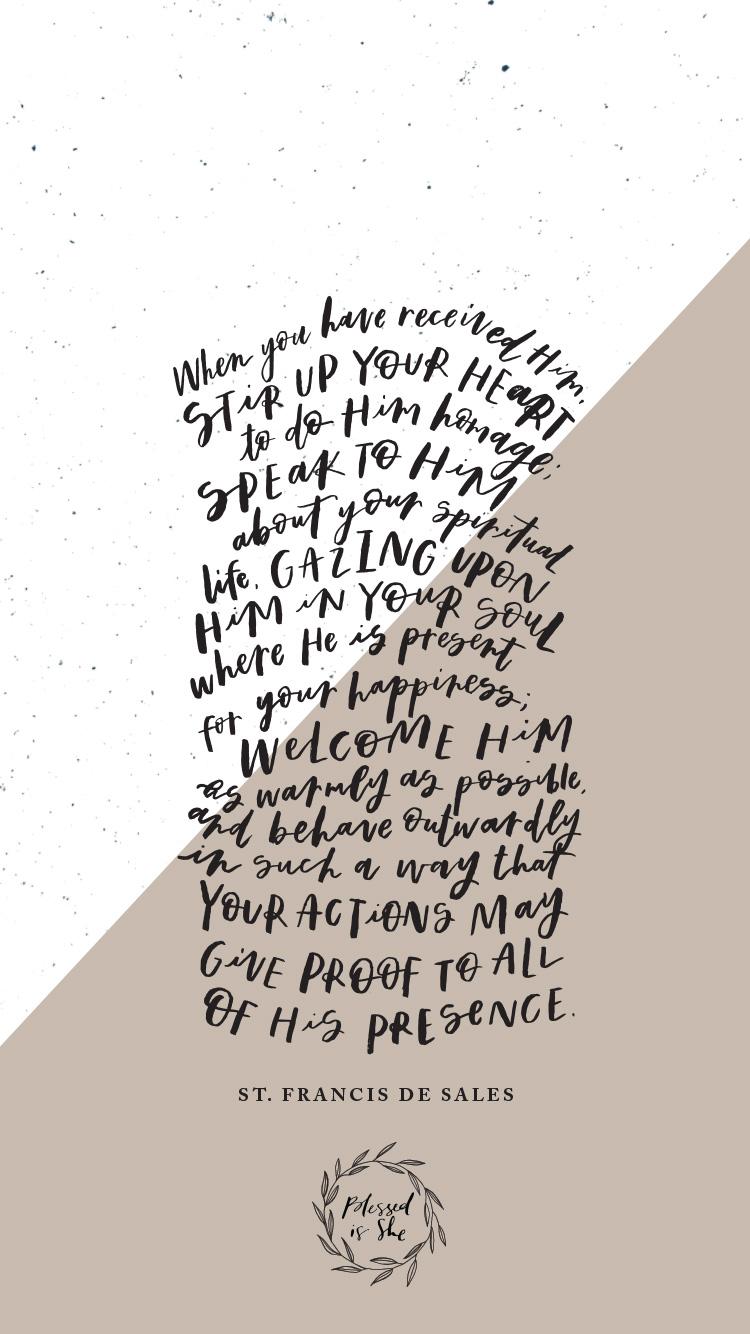 When you have received Him,
STiR UP YOUR HEaRT
to do Him homage;
SPEaK TO HiM
about your spiritual
life, GAZING UPON
HiM iN YOUR SOUL
where He is present
for your happiness;
WELCOME HiM
as warmly as possible,
and behave outwardly
in such a way that
YOUR ACTiONS May
GiVE PROOF TO ALL
OF HiS PRESENCE.
ST. FRANCIS DE SALES
Blessed
is She